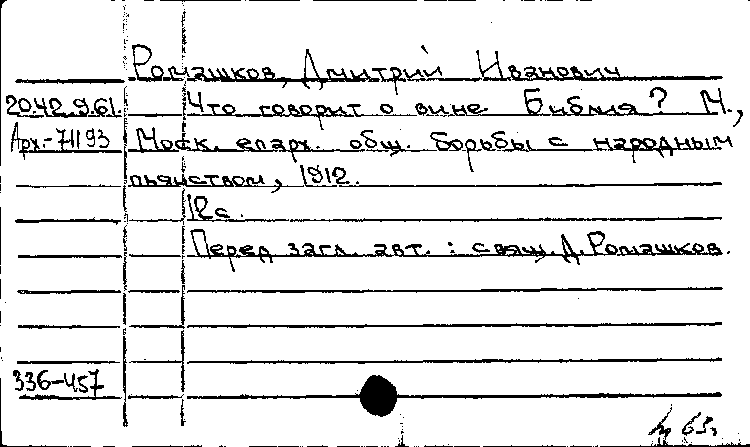 Ромашков, Дмитрий Иванович
20.42.9.61. Что говорит о вине Библия? М.,
Арх.-71193 Моск. епарх. общ. борьбы с народным
пьянством, 1912.
12с.
Перед загл. авт.: свящ. Д. Ромашков.
336-457
63г